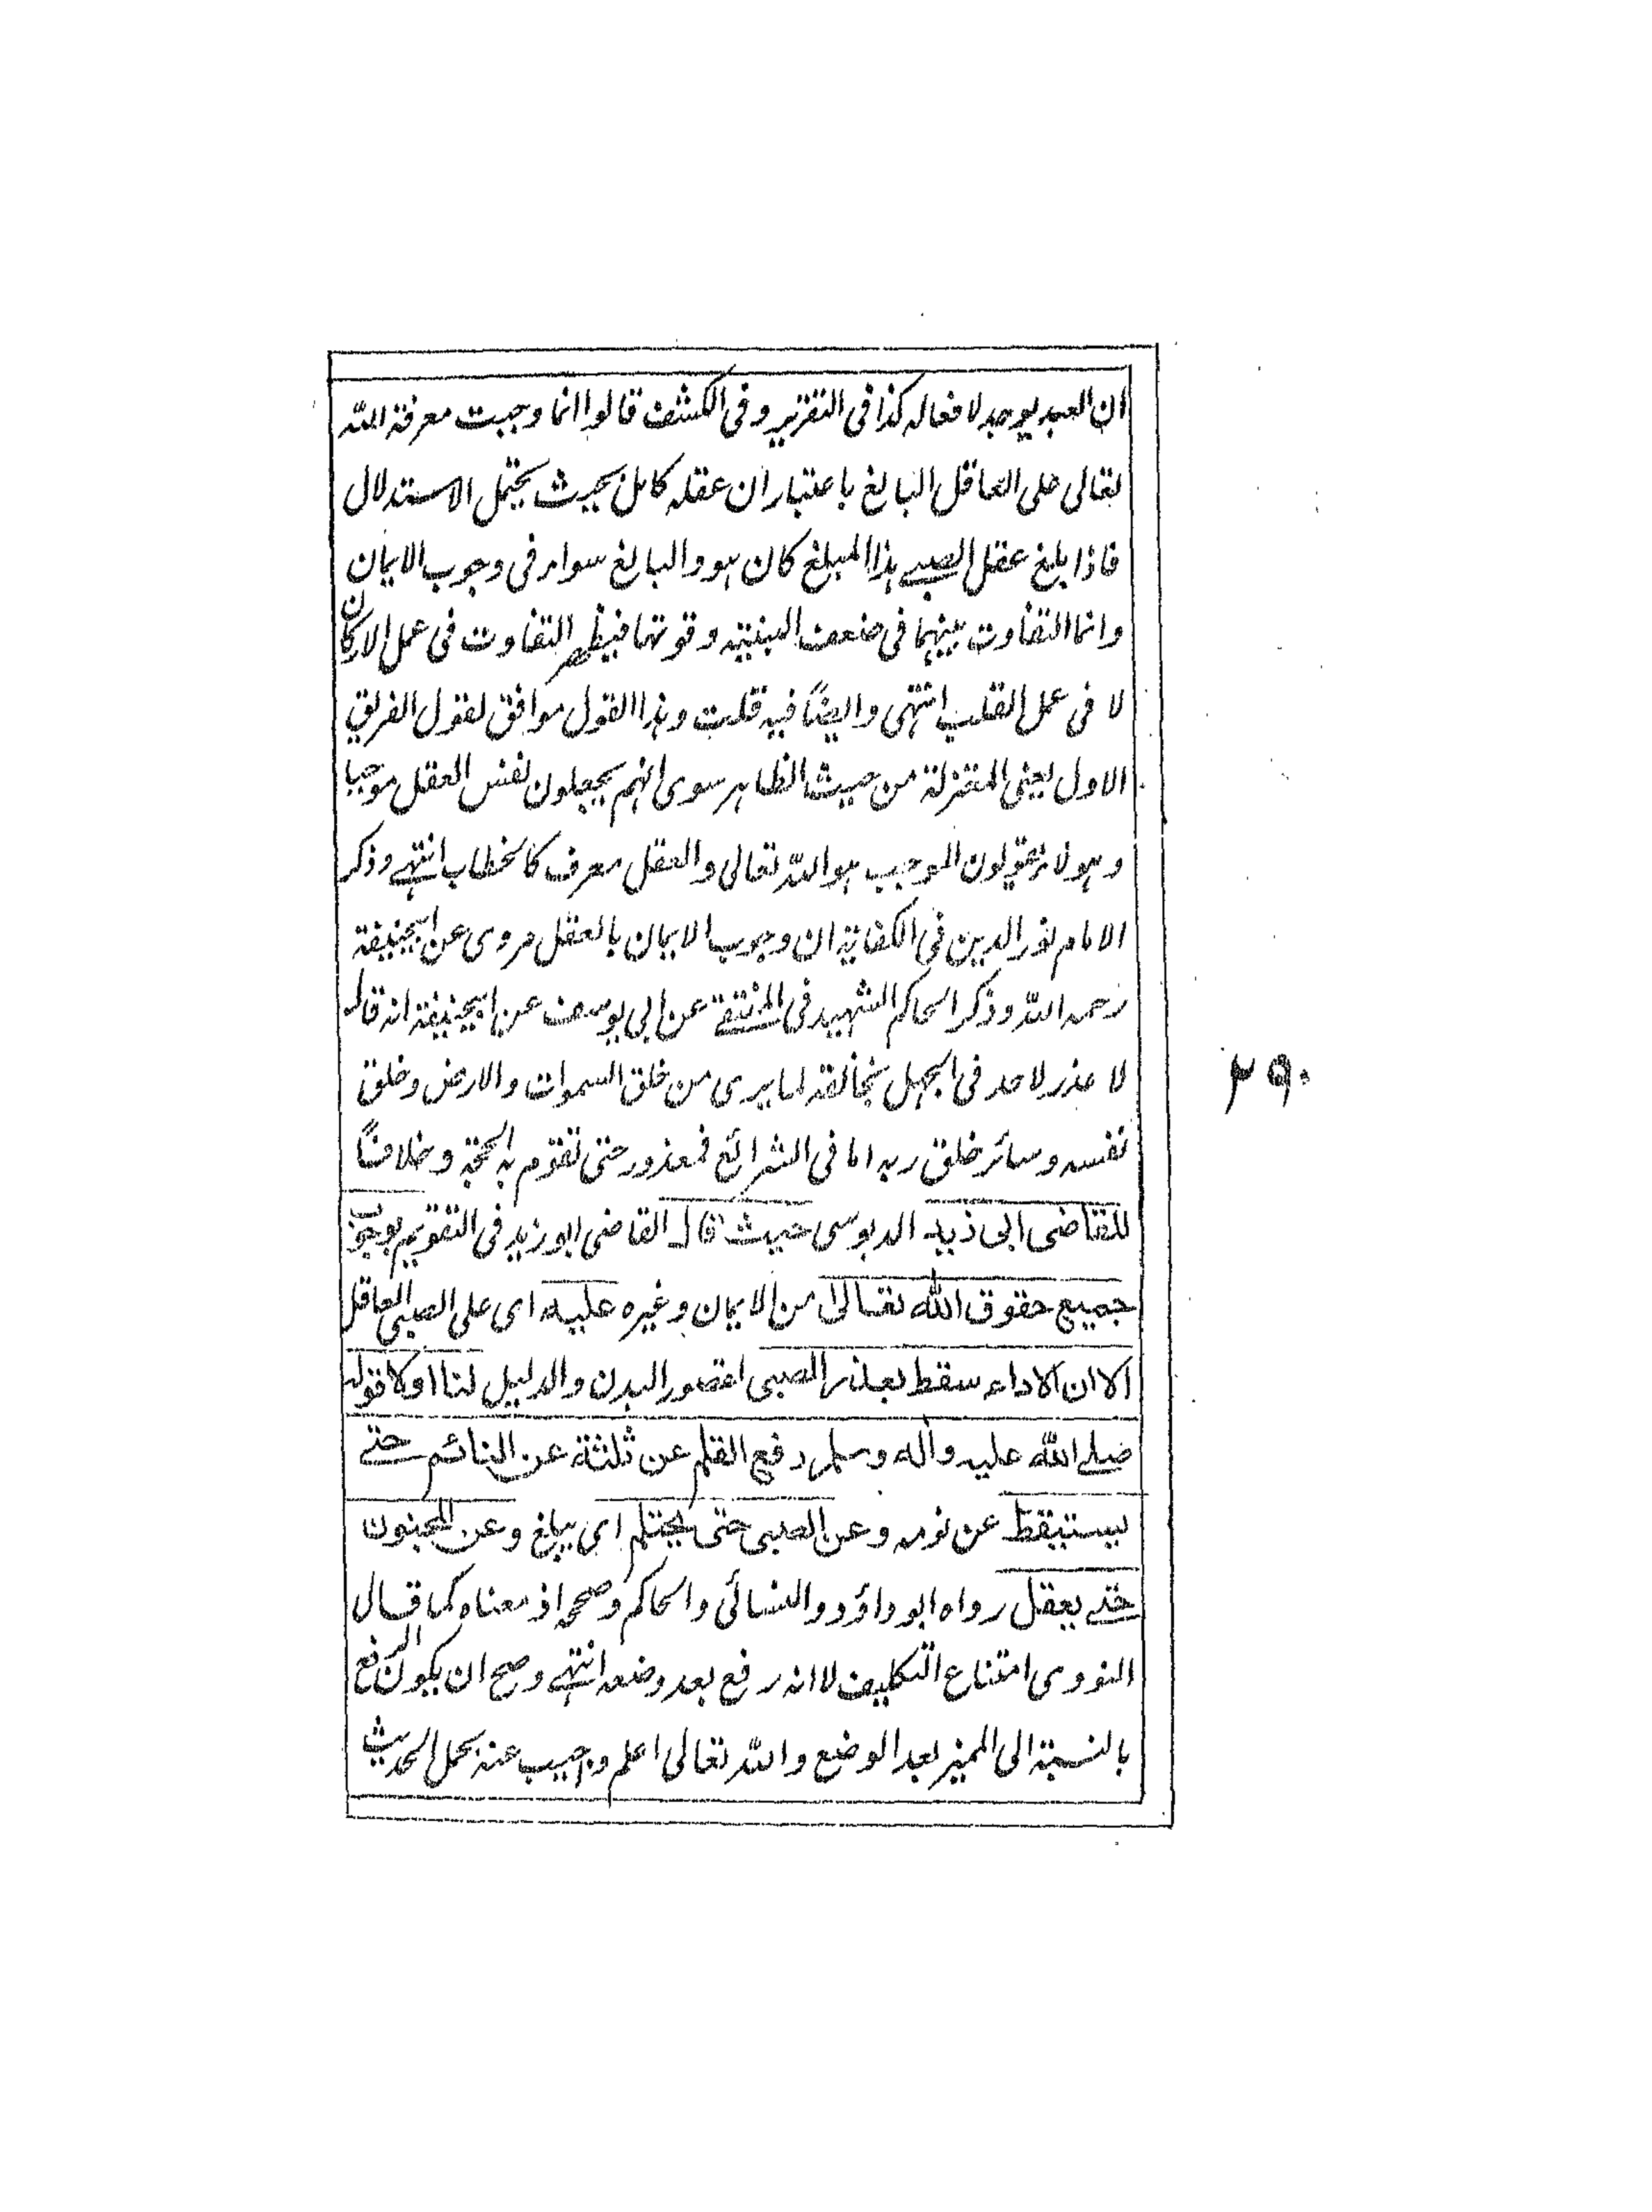 ان العبد يوجد لافعاله كذا فى التقرير وفى الكشف قالوا انما وجبت معرفة الله
تعالى على العاقل البالغ باعتبار ان عقله كامل بحيث يحتمل الاستدلال
فاذا بلغ عقل الصبے هذا المبلغ كان هو والبالغ سواء فى وجوب الايمان
وانما التفاوت بينهما فى ضعف البنية وقوتها فيظهر التفاوت فى عمل الاركان
لا فى عمل القلب انتهى وايضًا فيه قلت وهذا القول موافق لقول الفريق
الاول يعنى المعتزلة من حيث الظاهر سوى انهم يجعلون نفس العقل موجبا
وهولاء يقولون الموجب هو الله تعالى والعقل معرف كالخطاب انتهے وذكر
الامام نور الدين فى الكفاية ان وجوب الايمان بالعقل مروى عن ابيحنيفة
رحمه الله وذكر الحاكم الشهيد فى المنتقے عن ابى يوسف عن ابيحنيفة انه قال
لا عذر لاحد فى الجهل بخالقه لما يرى من خلق السموات والارض وخلق
نفسه وسائر خلق ربه اما فى الشرائع فمعذور حتى تقوم به الحجة وخلافًا
للقاضى ابى زيد الدبوسى حيث قال القاضى ابو زيد فى التقويم بوجوب
جميع حقوق الله تعالى من الايمان وغيره عليه اى على الصبى العاقل
الا ان الاداء سقط بعذر الصبى لقصور البدن والدليل لنا اولا قوله
صلے الله عليه وآله وسلم رفع القلم عن ثلثة عن النائم حتے
يستيقظ عن نومه وعن الصبى حتى يحتلم اى يبلغ وعن المجنون
حتے يعقل رواه ابو داؤد والنسائى والحاكم وصححه اذ معناه كما قال
النووى امتناع التكليف لا انه رفع بعد وضعه انتهے وصح ان يكون الرفع
بالنسبة الى المميز بعد الوضع والله تعالى اعلم واجيب عنه بحمل الحديث
٢٩٠